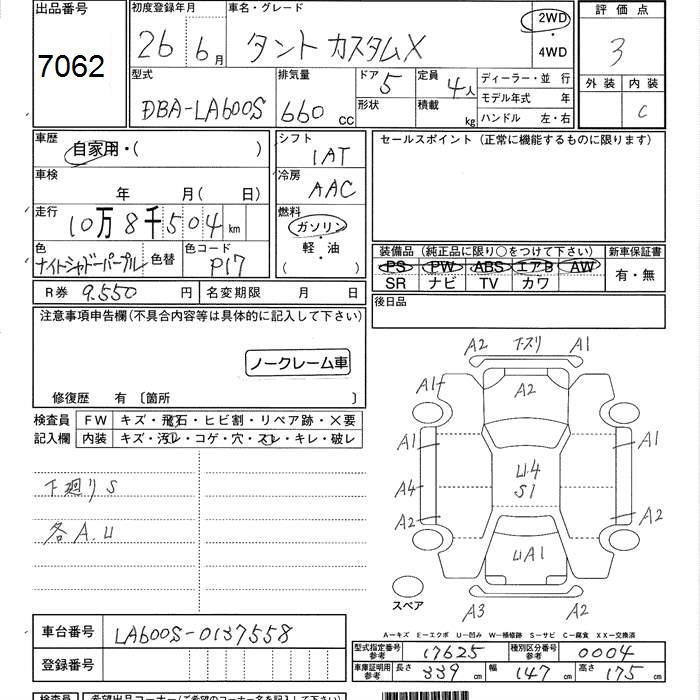 出品番号 初度登録年月 車名・グレード 2WD 評価点
7062 26年 6月 タント カスタムX ・ 3
4WD
型式 排気量 ドア 5 定員 4人 ディーラー・並行 外装 内装
DBA-LA600S 660cc 形状 積載 kg モデル年式 年 C
ハンドル 左・右
車歴 自家用・( ) シフト セールスポイント (正常に機能するものに限ります)
IAT
車検 冷房
年 月( 日) AAC
走行 燃料
10万8千504km ガソリン
色 色替 色コード 軽・油 装備品 (純正品に限り○をつけて下さい) 新車保証書
ナイトシャドーパープル P17 ( ) PS PW ABS エアB AW 有・無
SR ナビ TV カワ
R券 9.550円 名変期限 月 日 後日品
注意事項申告欄(不具合内容等は具体的に記入して下さい)
ノークレーム車
修復歴 有 〔箇所 〕
検査員 FW キズ・飛石・ヒビ割・リペア跡・×要
記入欄 内装 キズ・汚レ・コゲ・穴・スレ・キレ・破レ
下廻りS
各A.U
A2 下スリ A1
A1 A2 A1
A1 A1
U4
S1
A4
A2 A2
UA1
スペア A3 A2
A-キズ E-エクボ U-凹み W-補修跡 S-サビ C-腐食 XX-交換済
車台番号 LA600S-0137558
登録番号
型式指定番号 参考 17625 種別区分番号 参考 0004
車庫証明用 参考 長さ 339cm 幅 147cm 高さ 175cm
検査員 希望出品コーナー(ご希望のコーナー名を記入下さい)